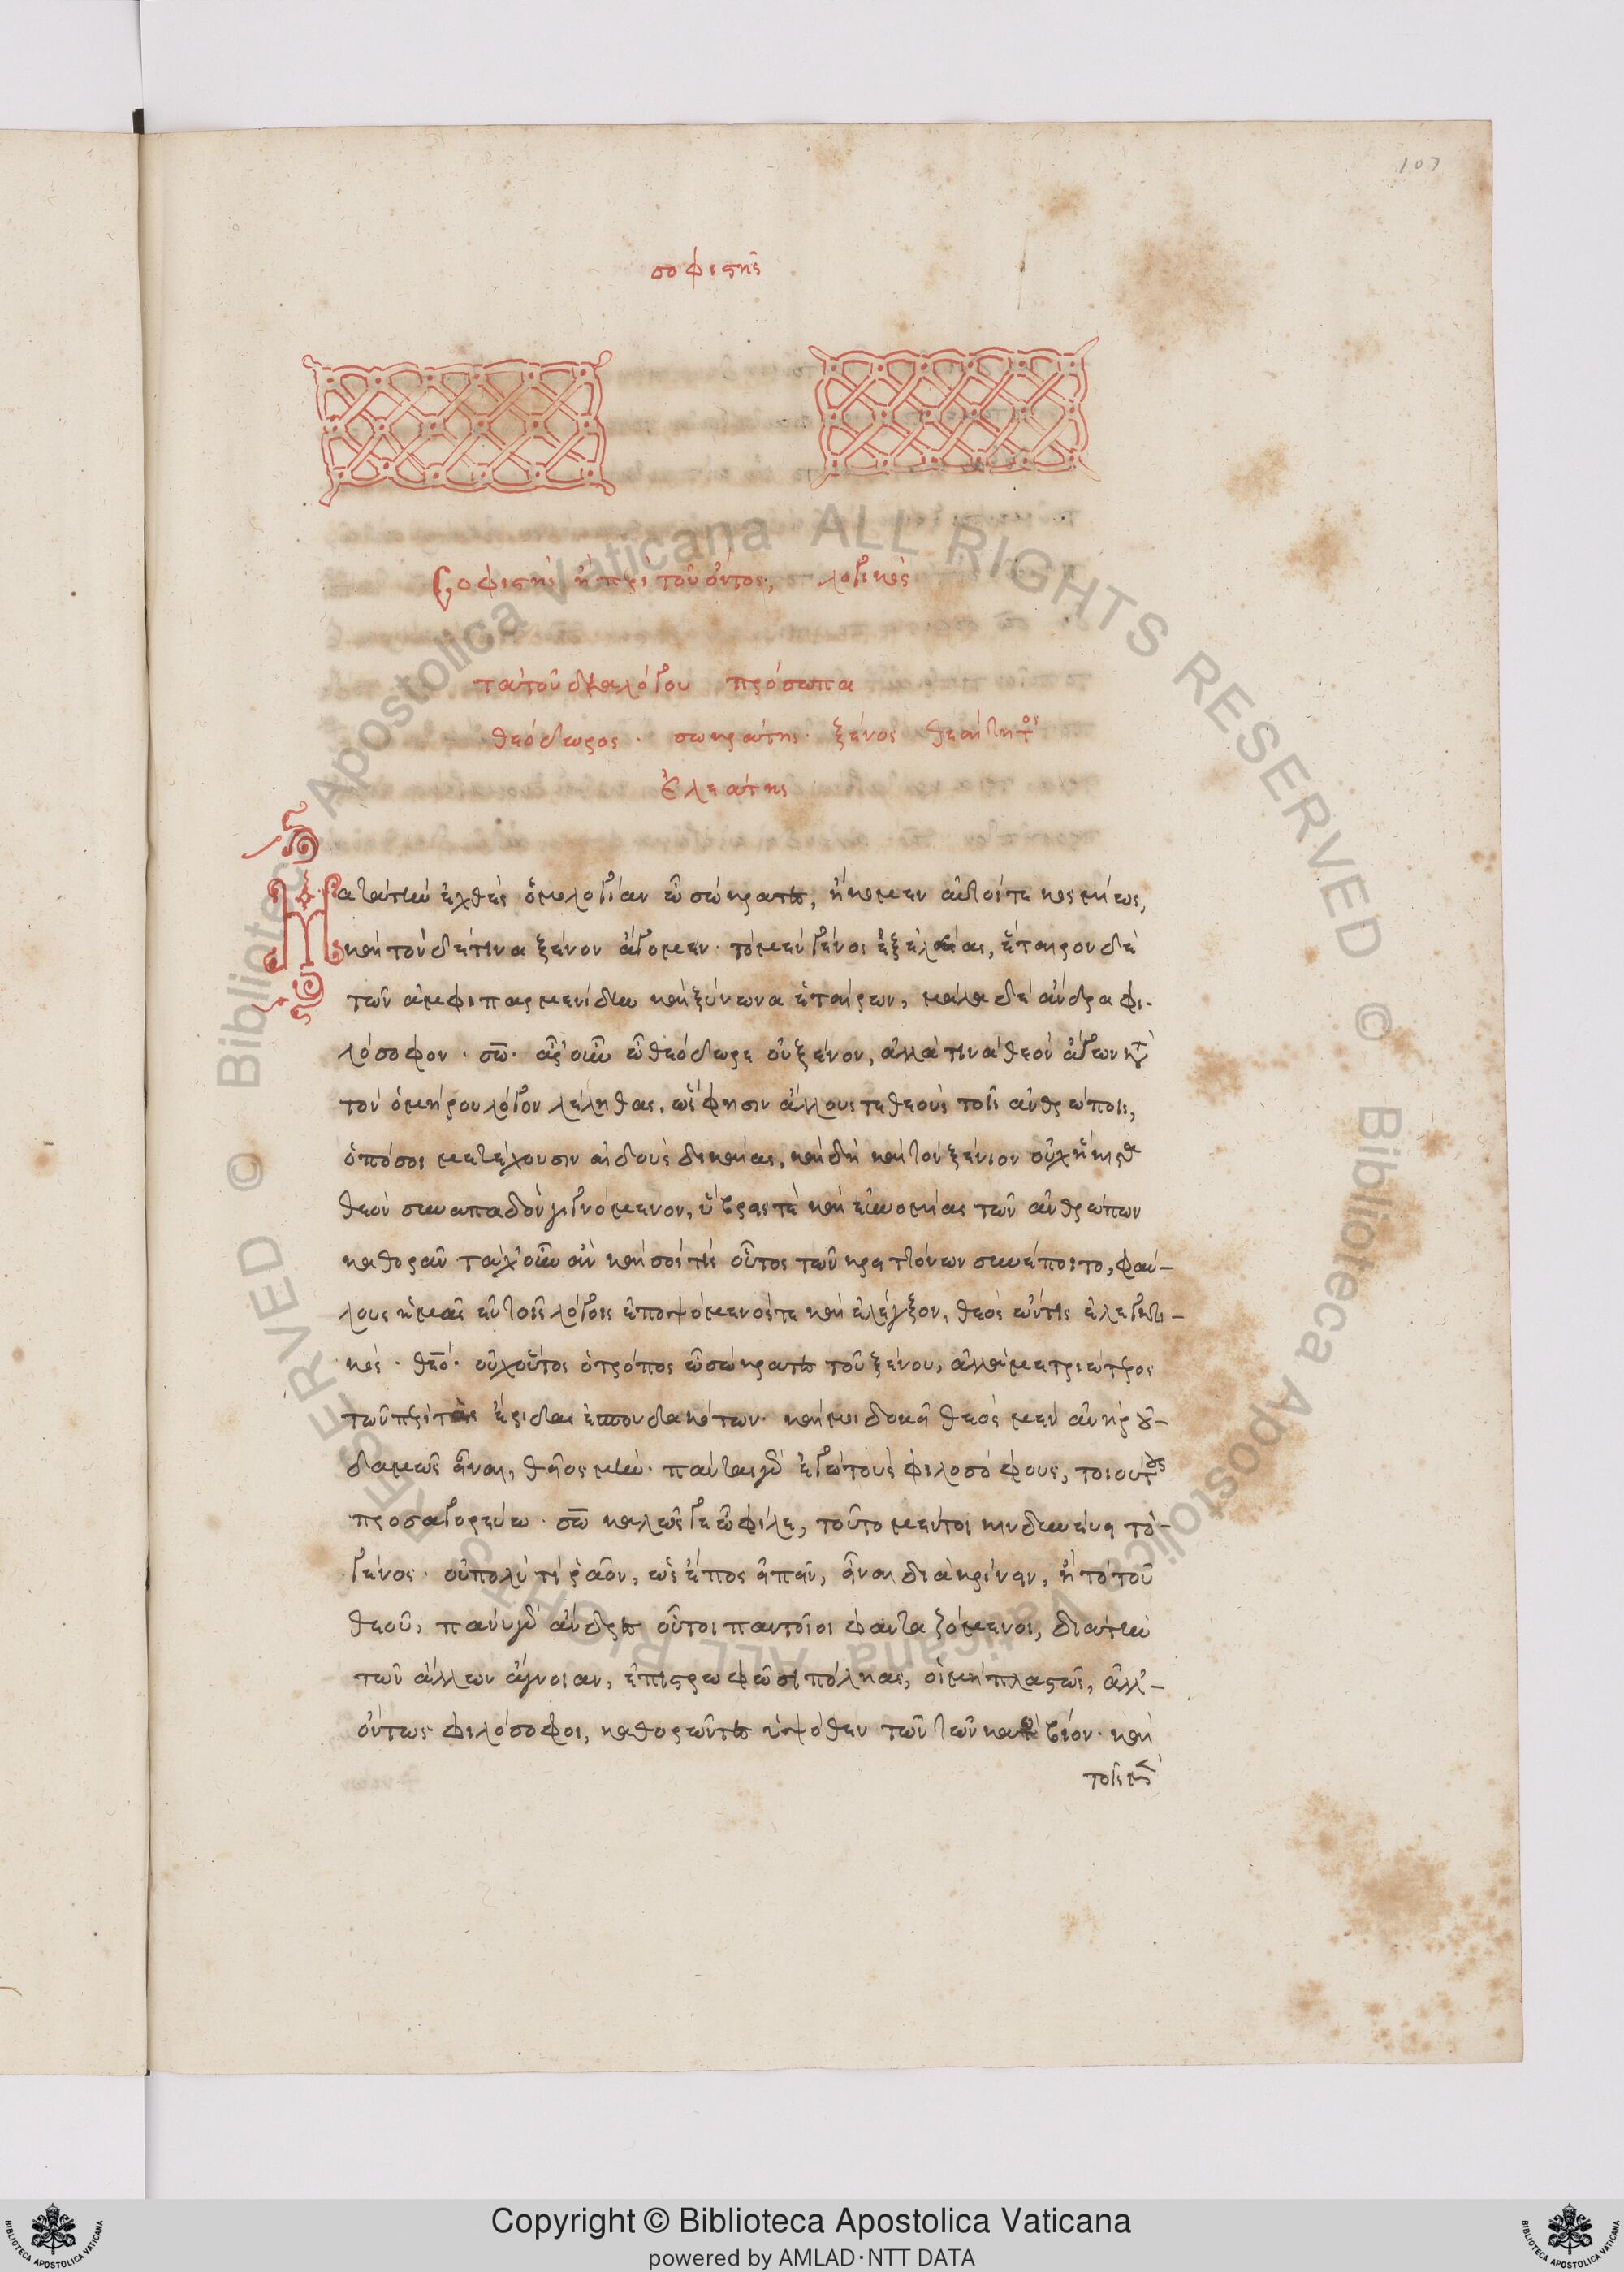 107
σοφιστής
Σοφιστὴς ἢ περὶ τοῦ ὄντος, λογικός
τὰ τοῦ διαλόγου πρόσωπα
θεόδωρος · σωκράτης · ξένος θεαίτητος
ἐλεάτης
Κατὰ τὴν ἐχθὲς ὁμολογίαν ὦ σώκρατες, ἥκομεν αὐτοί τε κοσμίως,
καὶ τόνδέ τινα ξένον ἄγομεν · τὸ μὲν γένος ἐξ ἐλέας, ἕταιρον δὲ
τῶν ἀμφὶ παρμενίδην καὶ ζήνωνα ἑταίρων, μάλα δὲ ἄνδρα φι-
λόσοφον · σω · ἆρ' οὖν ὦ θεόδωρε οὐ ξένον, ἀλλά τινα θεὸν ἄγων κατὰ
τὸν ὁμήρου λόγον λέληθας, ὥς φησιν ἄλλους τε θεοὺς τοῖς ἀνθρώποις,
ὁπόσοι μετέχουσιν αἰδοῦς δικαίας, καὶ δὴ καὶ τὸν ξένιον οὐχ ἥκιστα
θεὸν συνοπαδὸν γιγνόμενον, ὕβρεις τὲ καὶ εὐνομίας τῶν ἀνθρώπων
καθορᾶν τάχ' οὖν ἂν καὶ σοί τις οὗτος τῶν κρειττόνων συνέποιτο, φαύ-
λους ἡμᾶς ἐν τοῖς λόγοις ἐποψόμενός τε καὶ ἐλέγξων, θεὸς ὤν τις ἐλεγκτι-
κός · θεό · οὐχ οὗτος ὁ τρόπος ὦ σώκρατες τοῦ ξένου, ἀλλὰ μετριώτερος
τῶν περὶ τὰς ἔριδας ἐσπουδακότων · καί μοι δοκεῖ θεὸς μὲν ἀνὴρ οὐ-
δαμῶς εἶναι, θεῖος μὴν · πάντας γὰρ ἐγὼ τοὺς φιλοσόφους, τοιούτους
προσαγορεύω · σω καλῶς γε ὦ φίλε, τοῦτο μέντοι κινδυνεύει τὸ-
γένος · οὐ πολύ τι ῥᾷον, ὡς ἔπος εἰπεῖν, εἶναι διακρίνειν, ἢ τὸ τοῦ
θεοῦ, πάνυ γὰρ ἄνδρες οὗτοι παντοῖοι φανταζόμενοι, διὰ τὴν
τῶν ἄλλων ἄγνοιαν, ἐπιστρωφῶσι πόληας, οἱ μὴ πλαστῶς, ἀλλ'-
ὄντως φιλόσοφοι, καθορῶντες ὑψόθεν τῶν τῶν κάτω βίον · καὶ
τοῖς μὲν
Copyright © Biblioteca Apostolica Vaticana
powered by AMLAD·NTT DATA
© Biblioteca Apostolica Vaticana ALL RIGHTS RESERVED
© Biblioteca Apostolica Vaticana ALL RIGHTS RESERVED
BIBLIOTECA APOSTOLICA VATICANA
BIBLIOTECA APOSTOLICA VATICANA